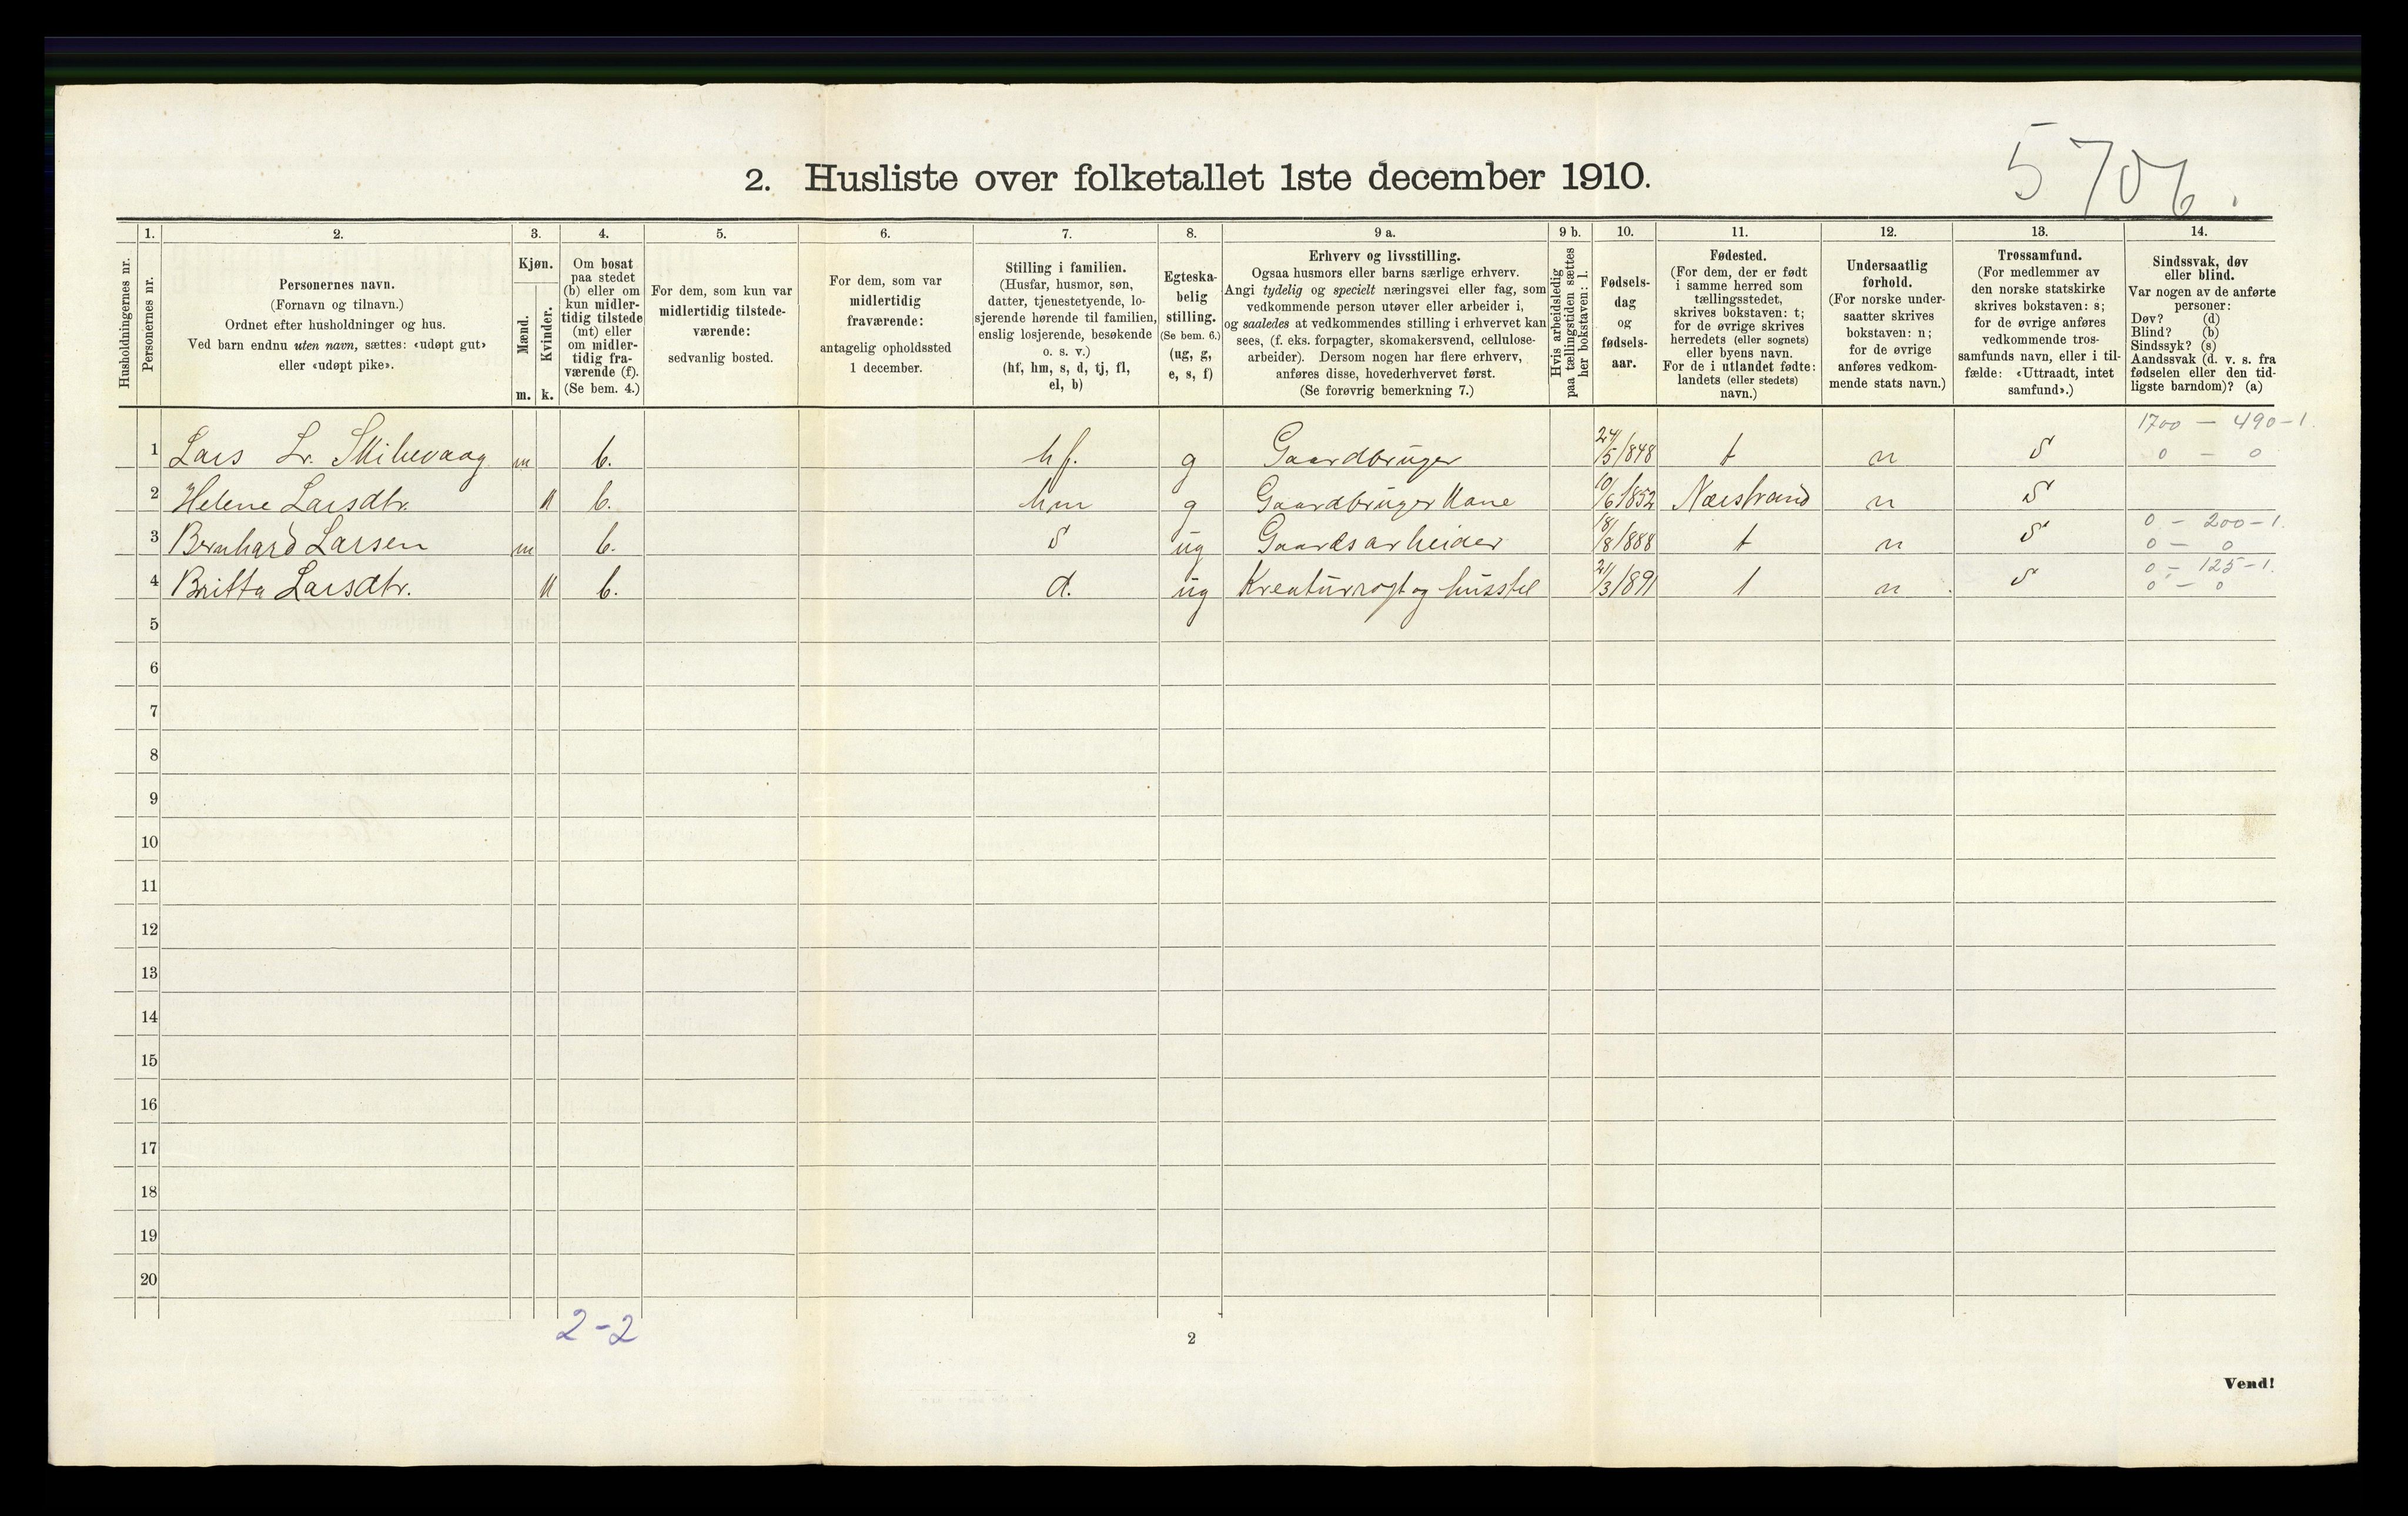 5706.
2. Husliste over folketallet 1ste december 1910.
1. 2. 3. 4. 5. 6. 7. 8. 9 a. 9 b. 10. 11. 12. 13. 14.
Husholdningernes nr.
Personernes nr.
Personernes navn.
(Fornavn og tilnavn.)
Ordnet efter husholdninger og hus.
Ved barn endnu uten navn, sættes: «udøpt gut»
eller «udøpt pike».
Kjøn.
Mænd.
m.
Kvinder.
k.
Om bosat
paa stedet
(b) eller om
kun midler-
tidig tilstede
(mt) eller
om midler-
tidig fra-
værende (f).
(Se bem. 4.)
For dem, som kun var
midlertidig tilstede-
værende:
sedvanlig bosted.
For dem, som var
midlertidig
fraværende:
antagelig opholdssted
1 december.
Stilling i familien.
(Husfar, husmor, søn,
datter, tjenestetyende, lo-
sjerende hørende til familien,
enslig losjerende, besøkende
o. s. v.)
(hf, hm, s, d, tj, fl,
el, b)
Egteska-
belig
stilling.
(Se bem. 6.)
(ug, g,
e, s, f)
Erhverv og livsstilling.
Ogsaa husmors eller barns særlige erhverv.
Angi tydelig og specielt næringsvei eller fag, som
vedkommende person utøver eller arbeider i,
og saaledes at vedkommendes stilling i erhvervet kan
sees, (f. eks. forpagter, skomakersvend, cellulose-
arbeider). Dersom nogen har flere erhverv,
anføres disse, hovederhvervet først.
(Se forøvrig bemerkning 7.)
Hvis arbeidsledig
paa tællingstiden sættes
her bokstaven: l.
Fødsels-
dag
og
fødsels-
aar.
Fødested.
(For dem, der er født
i samme herred som
tællingsstedet,
skrives bokstaven: t;
for de øvrige skrives
herredets (eller sognets)
eller byens navn.
For de i utlandet fødte:
landets (eller stedets)
navn.)
Undersaatlig
forhold.
(For norske under-
saatter skrives
bokstaven: n;
for de øvrige
anføres vedkom-
mende stats navn.)
Trossamfund.
(For medlemmer av
den norske statskirke
skrives bokstaven: s;
for de øvrige anføres
vedkommende tros-
samfunds navn, eller i til-
fælde: «Uttraadt, intet
samfund».)
Sindssvak, døv
eller blind.
Var nogen av de anførte
personer:
Døv? (d)
Blind? (b)
Sindssyk? (s)
Aandssvak (d. v. s. fra
fødselen eller den tid-
ligste barndom)? (a)
1700 - 490-1.
1 Lars Lr. Skibevaag m b. hf. g Gaardbruger 24/5/848 t n S 0 - 0
2 Helene Larsdtr. k b. hm g Gaardbruger Kone 10/6 1852 Nærstrand n S
0 - 200-1.
3 Bernhard Larsen m b. S ug Gaardsarbeider 18/8/888 t n S 0 - 0
0 - 125-1.
4 Britta Larsdtr. k b. d. ug Kreaturrøgt og husstel 21/3/891 t n S 0 - 0
5
6
7
8
9
10
11
12
13
14
15
16
17
18
19
20
2-2
2
Vend!